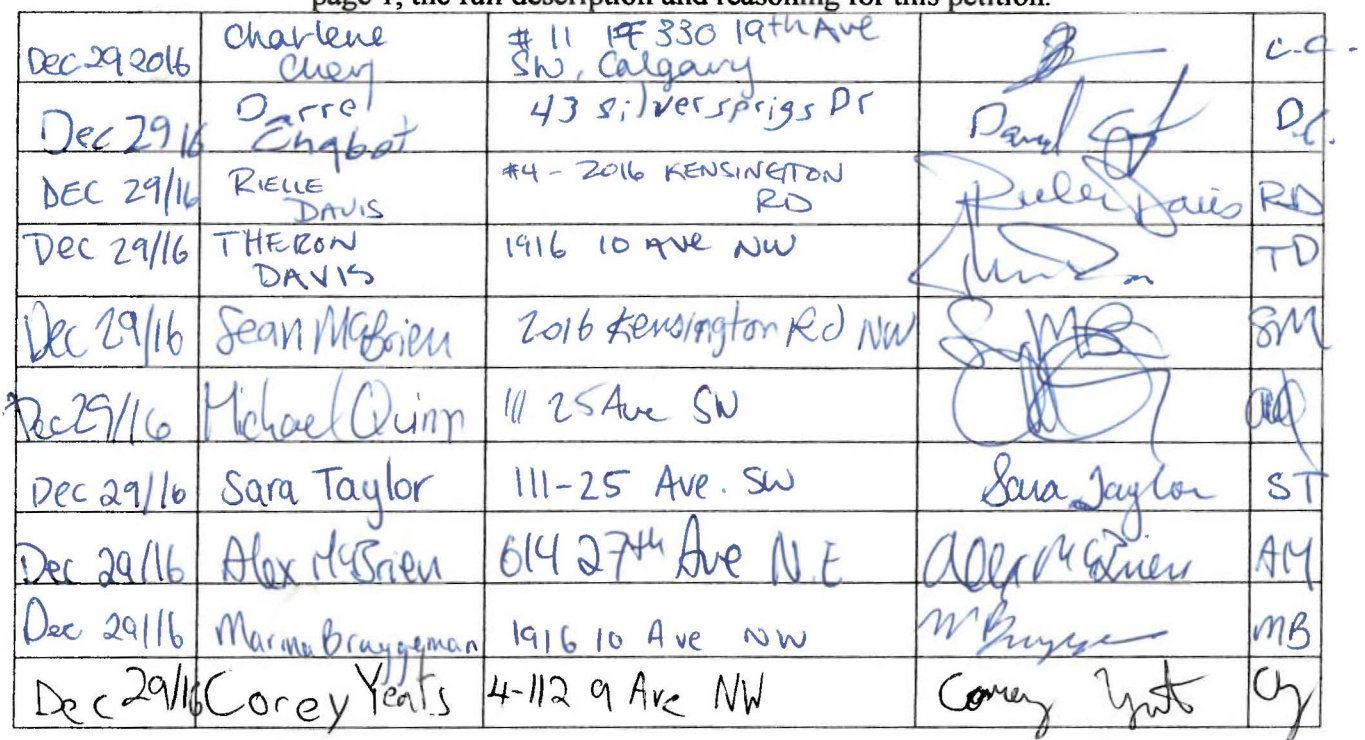 page 1, the full description and reasoning for this petition.
Dec 29 2016 Charlene Cheng # 11 330 19th Ave SW, Calgary C.C.
Dec 29 16 Darrel Chabot 43 silversprigs Dr D.C.
DEC 29/16 RIELLE DAVIS #4 - 2016 KENSINGTON RD Rielle Davis RD
Dec 29/16 THERON DAVIS 1916 10 AVE NW TD
Dec 29/16 Sean McBrien 2016 Kensington Rd NW SM
Dec 29/16 Michael Quinn 111 25 Ave SW
Dec 29/16 Sara Taylor 111-25 Ave. SW Sara Taylor ST
Dec 29/16 Alex McBrien 614 27th Ave N.E Alex McBrien AM
Dec 29/16 Marina Bruggeman 1916 10 Ave NW MB
Dec 29/16 Corey Yeats 4-112 9 Ave NW Corey Yeats CY